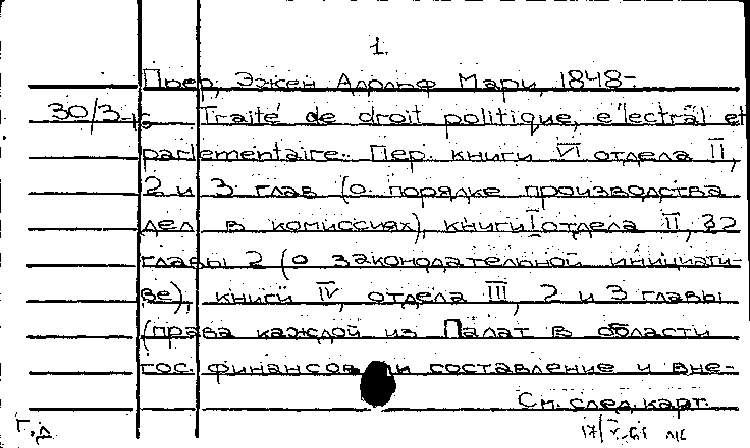 1.
Пьер, Эжен Адольф Мари, 1848-
30/3-16 Traité de droit politique, électral et
parlementaire. Пер. книги VI отдела II,
2 и 3 глав (о порядке производства
дел в комиссиях), книги I отдела II, §2
главы 2 (о законодательной инициати-
ве), книги IV, отдела III, 2 и 3 главы
(права каждой из Палат в области
гос. финансов и составление и вне-
См. след. карт.
Г.д.